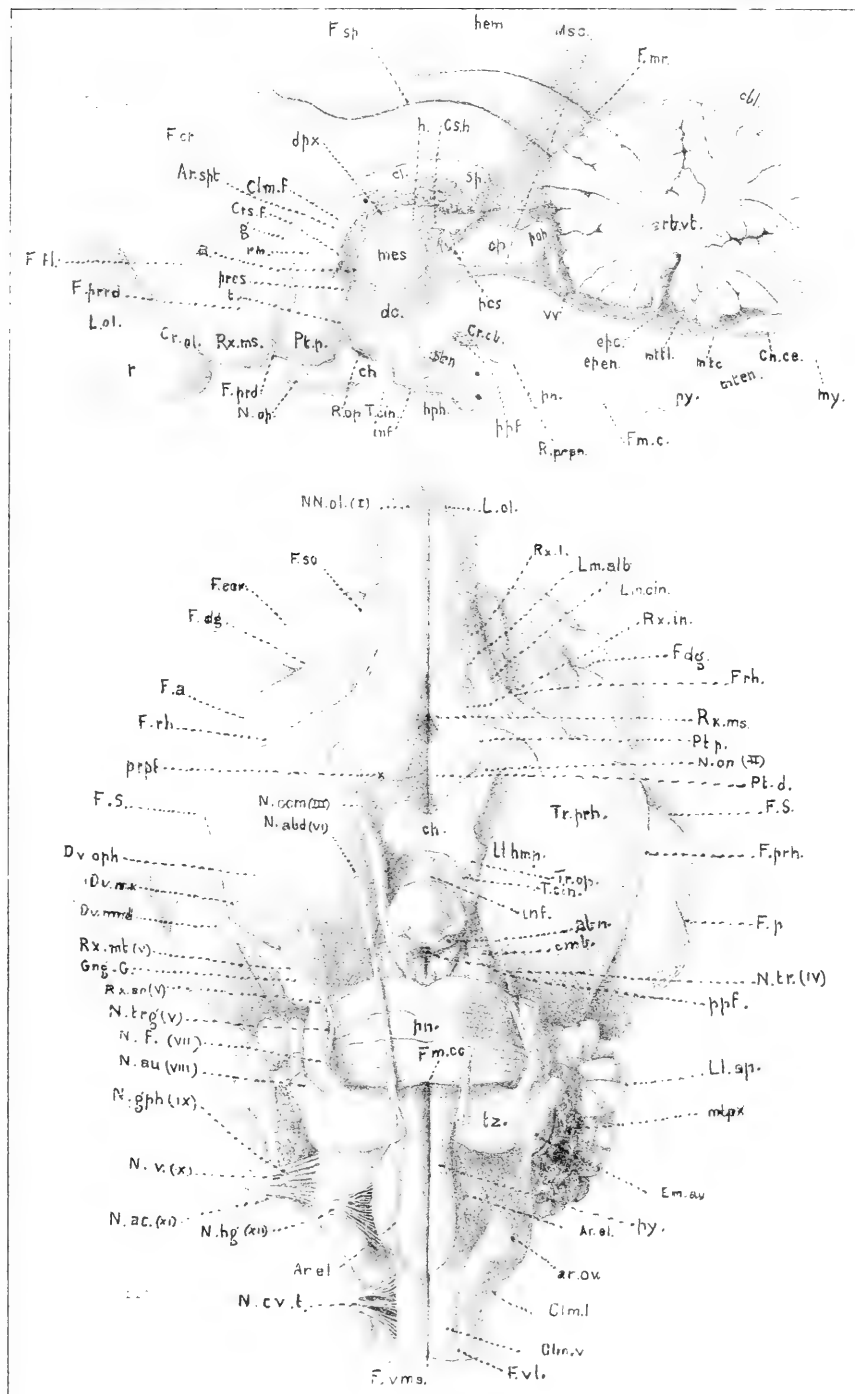 F.sp.
hem
Msc.
F.mr.
cbl.
F.cr
dpx
h.
Cs.h
Ar.spt
Clm.f.
cl.
Sp.
Crs.f.
g
rm.
a
mes
op
pop
arb.vt.
F.fl.
prcs
F.prrd
t.
dc.
pcs
vv
L.ol.
Cr.ol.
Rx.ms.
Pt.p.
Cr.cb.
epc.
epen.
mtfl.
mtc
mten.
Ch.ce.
r
ch
F.prd
N.op.
R.op
T.cin.
inf
hph.
ppf
pn.
R.prpn.
Fm.c.
py.
my.
NN.ol.(I)
L.ol.
F.so
Rx.l.
Lm.alb
F.cor.
Lm.cin.
F.dg.
Rx.in.
F.dg.
F.a
F.rh.
F.rh.
Rx.ms.
Pt.p.
prpf
x
N.op (II)
Pt.d.
F.S.
N.ocm(III)
N.abd(VI)
ch.
Tr.prh.
F.S.
Dv.oph
Ll.hmp.
F.prh.
Dv.mx
Tr.op.
T.cin.
Dv.mnd
inf.
F.p
Rx.mt(V)
alb.n.
cmb.
Gng.G.
N.tr.(IV)
Rx.sn(V)
ppf.
N.trg(V)
pn.
N.F.(VII)
Fm.cc
N.au(VIII)
Ll.ap.
N.gph(IX)
tz.
mtpx
N.v.(X)
Em.au
N.ac.(XI)
N.hg(XII)
Ar.el.
py.
Ar.el
ar.ov.
N.cv.t.
Clm.l
Clm.v
F.vms.
F.vl.